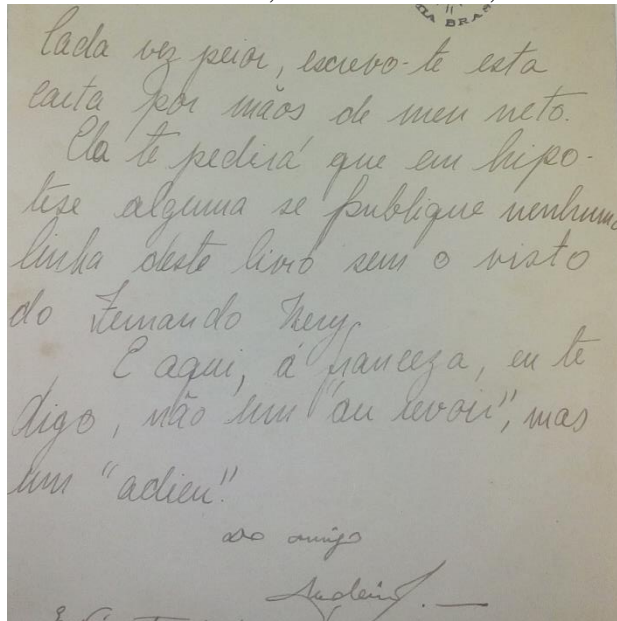 DA BRAS
Cada vez peior, escrevo-te esta
carta por mãos de meu neto.
Ela te pedirá que em hipo-
tese alguma se publique nenhuma
linha deste livro sem o visto
do Fernando Nery
E aqui, á franceza, eu te
digo, não um "au revoir", mas
um "adieu".
Do amigo